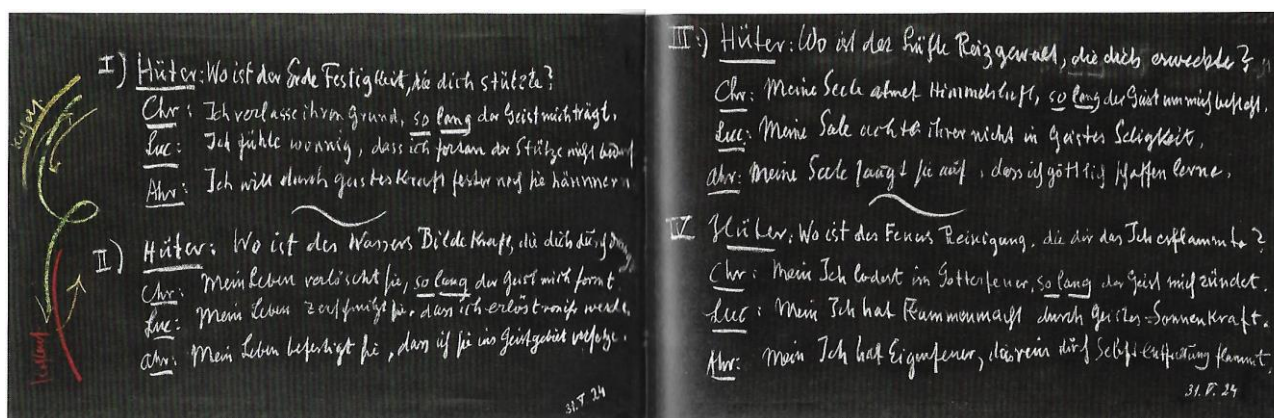 I) Hüter: Wo ist der Erde Festigkeit, die dich stützte?
Chr: Ich verlasse ihren Grund, so lang der Geist mich trägt.
Luc: Ich fühle wonnig, dass ich fortan der Stütze nicht bedarf
Ahr: Ich will durch Geisteskraft fester noch sie hämmern
II) Hüter: Wo ist des Wassers Bildekraft, die dich durchdrang?
Chr: Mein Leben verlöscht sie, so lang der Geist mich formt.
Luc: Mein Leben zerschmilzt sie, dass ich erlöst von ihr werde.
Ahr: Mein Leben befestigt sie, dass ich sie ins Geistgebiet versetze.
31. V. 24
III:) Hüter: Wo ist der Lüfte Reizgewalt, die dich erweckte?
Chr: Meine Seele atmet Himmelsluft, so lang der Geist um mich besteht.
Luc: Meine Seele achtet ihrer nicht in Geistes Seligkeit.
Ahr: Meine Seele saugt sie auf, dass ich göttlich schaffen lerne.
IV Hüter: Wo ist des Feuers Reinigung, die dir das Ich erflammte?
Chr: Mein Ich lodert im Gottesfeuer, so lang der Geist mich zündet.
Luc: Mein Ich hat Flammenmacht durch Geistes-Sonnenkraft.
Ahr: Mein Ich hat Eigenfeuer, das rein durch Selbstentfaltung flammt.
31. V. 24